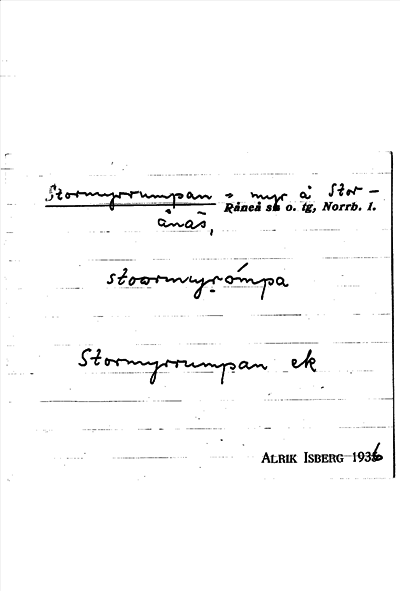 Stormyrrumpan → myr å Stor-
Råneå sn o. tg, Norrb. l.
ånäs,
stoormyrómpa
Stormyrrumpan ek
ALRIK ISBERG 1936